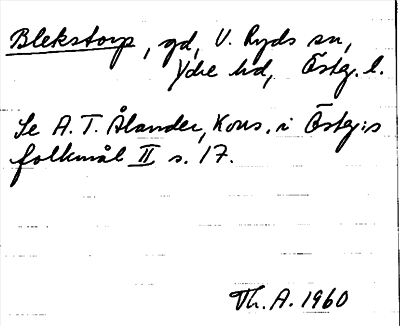 Blekstorp, gd, V. Ryds sn,
Ydre hd, Östg. l.
Se A. T. Ålander, Kons. i Östg:s
folkmål II s. 17.
Th. A. 1960